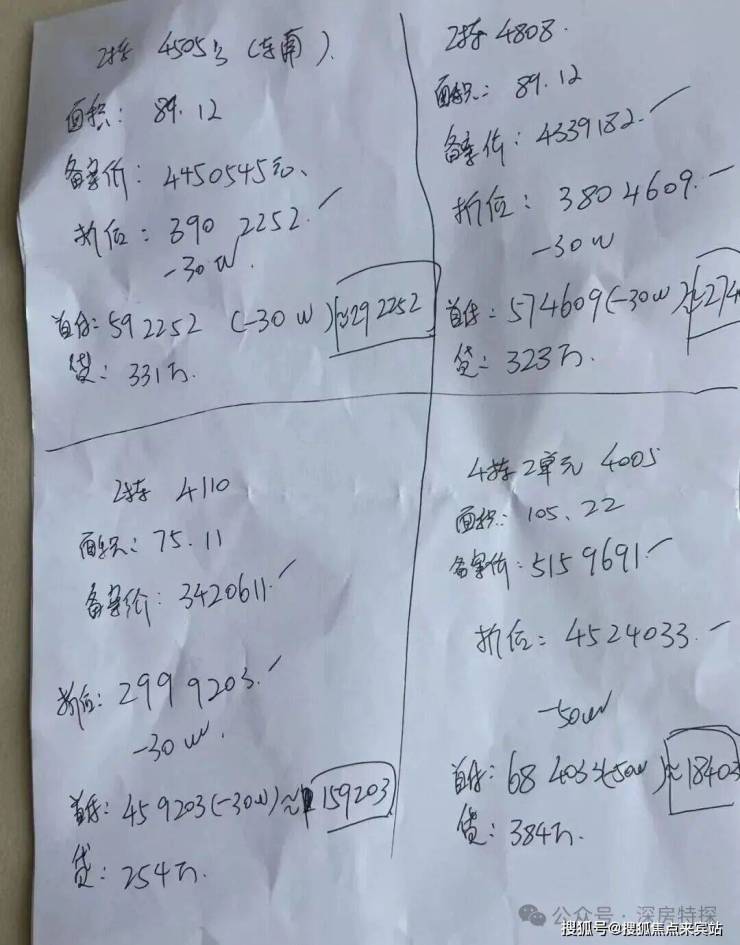 2栋 4505号（东南）.
面积： 89.12
备案价： 4450545元、
折后： 390 2252.
-30W.
首付：592252 （-30W）≈292252
贷：331万.
2栋 4808.
面积： 89.12
备案价：4339182.
折后： 380 4609.
-30W
首付：574609（-30W）≈274
贷：323万.
2栋 4110
面积：75.11
备案价：3420611.
折后：299 9203.
-30W.
首付：459203（-30W）≈159203
贷：254万.
4栋2单元 4005
面积：105.22
备案价：515 9691.
折后：4524033.
-50W
首付：684033（-50W）≈18403
贷：384万.
公众号·深房特探
搜狐号@搜狐焦点来宾站